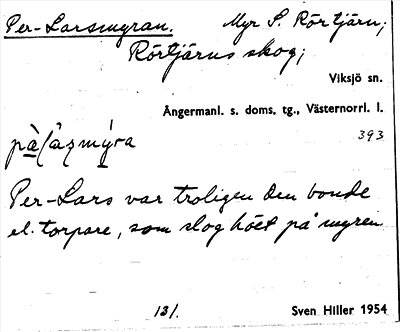 Per-Larsmyran. Myr S. Rörtjärn;
Rörtjärns skog;
Viksjö sn.
Ångermanl. s. doms. tg., Västernorrl. l.
393
Per-Lars var troligen den bonde
el. torpare, som slog höet på myren
131.
Sven Hiller 1954